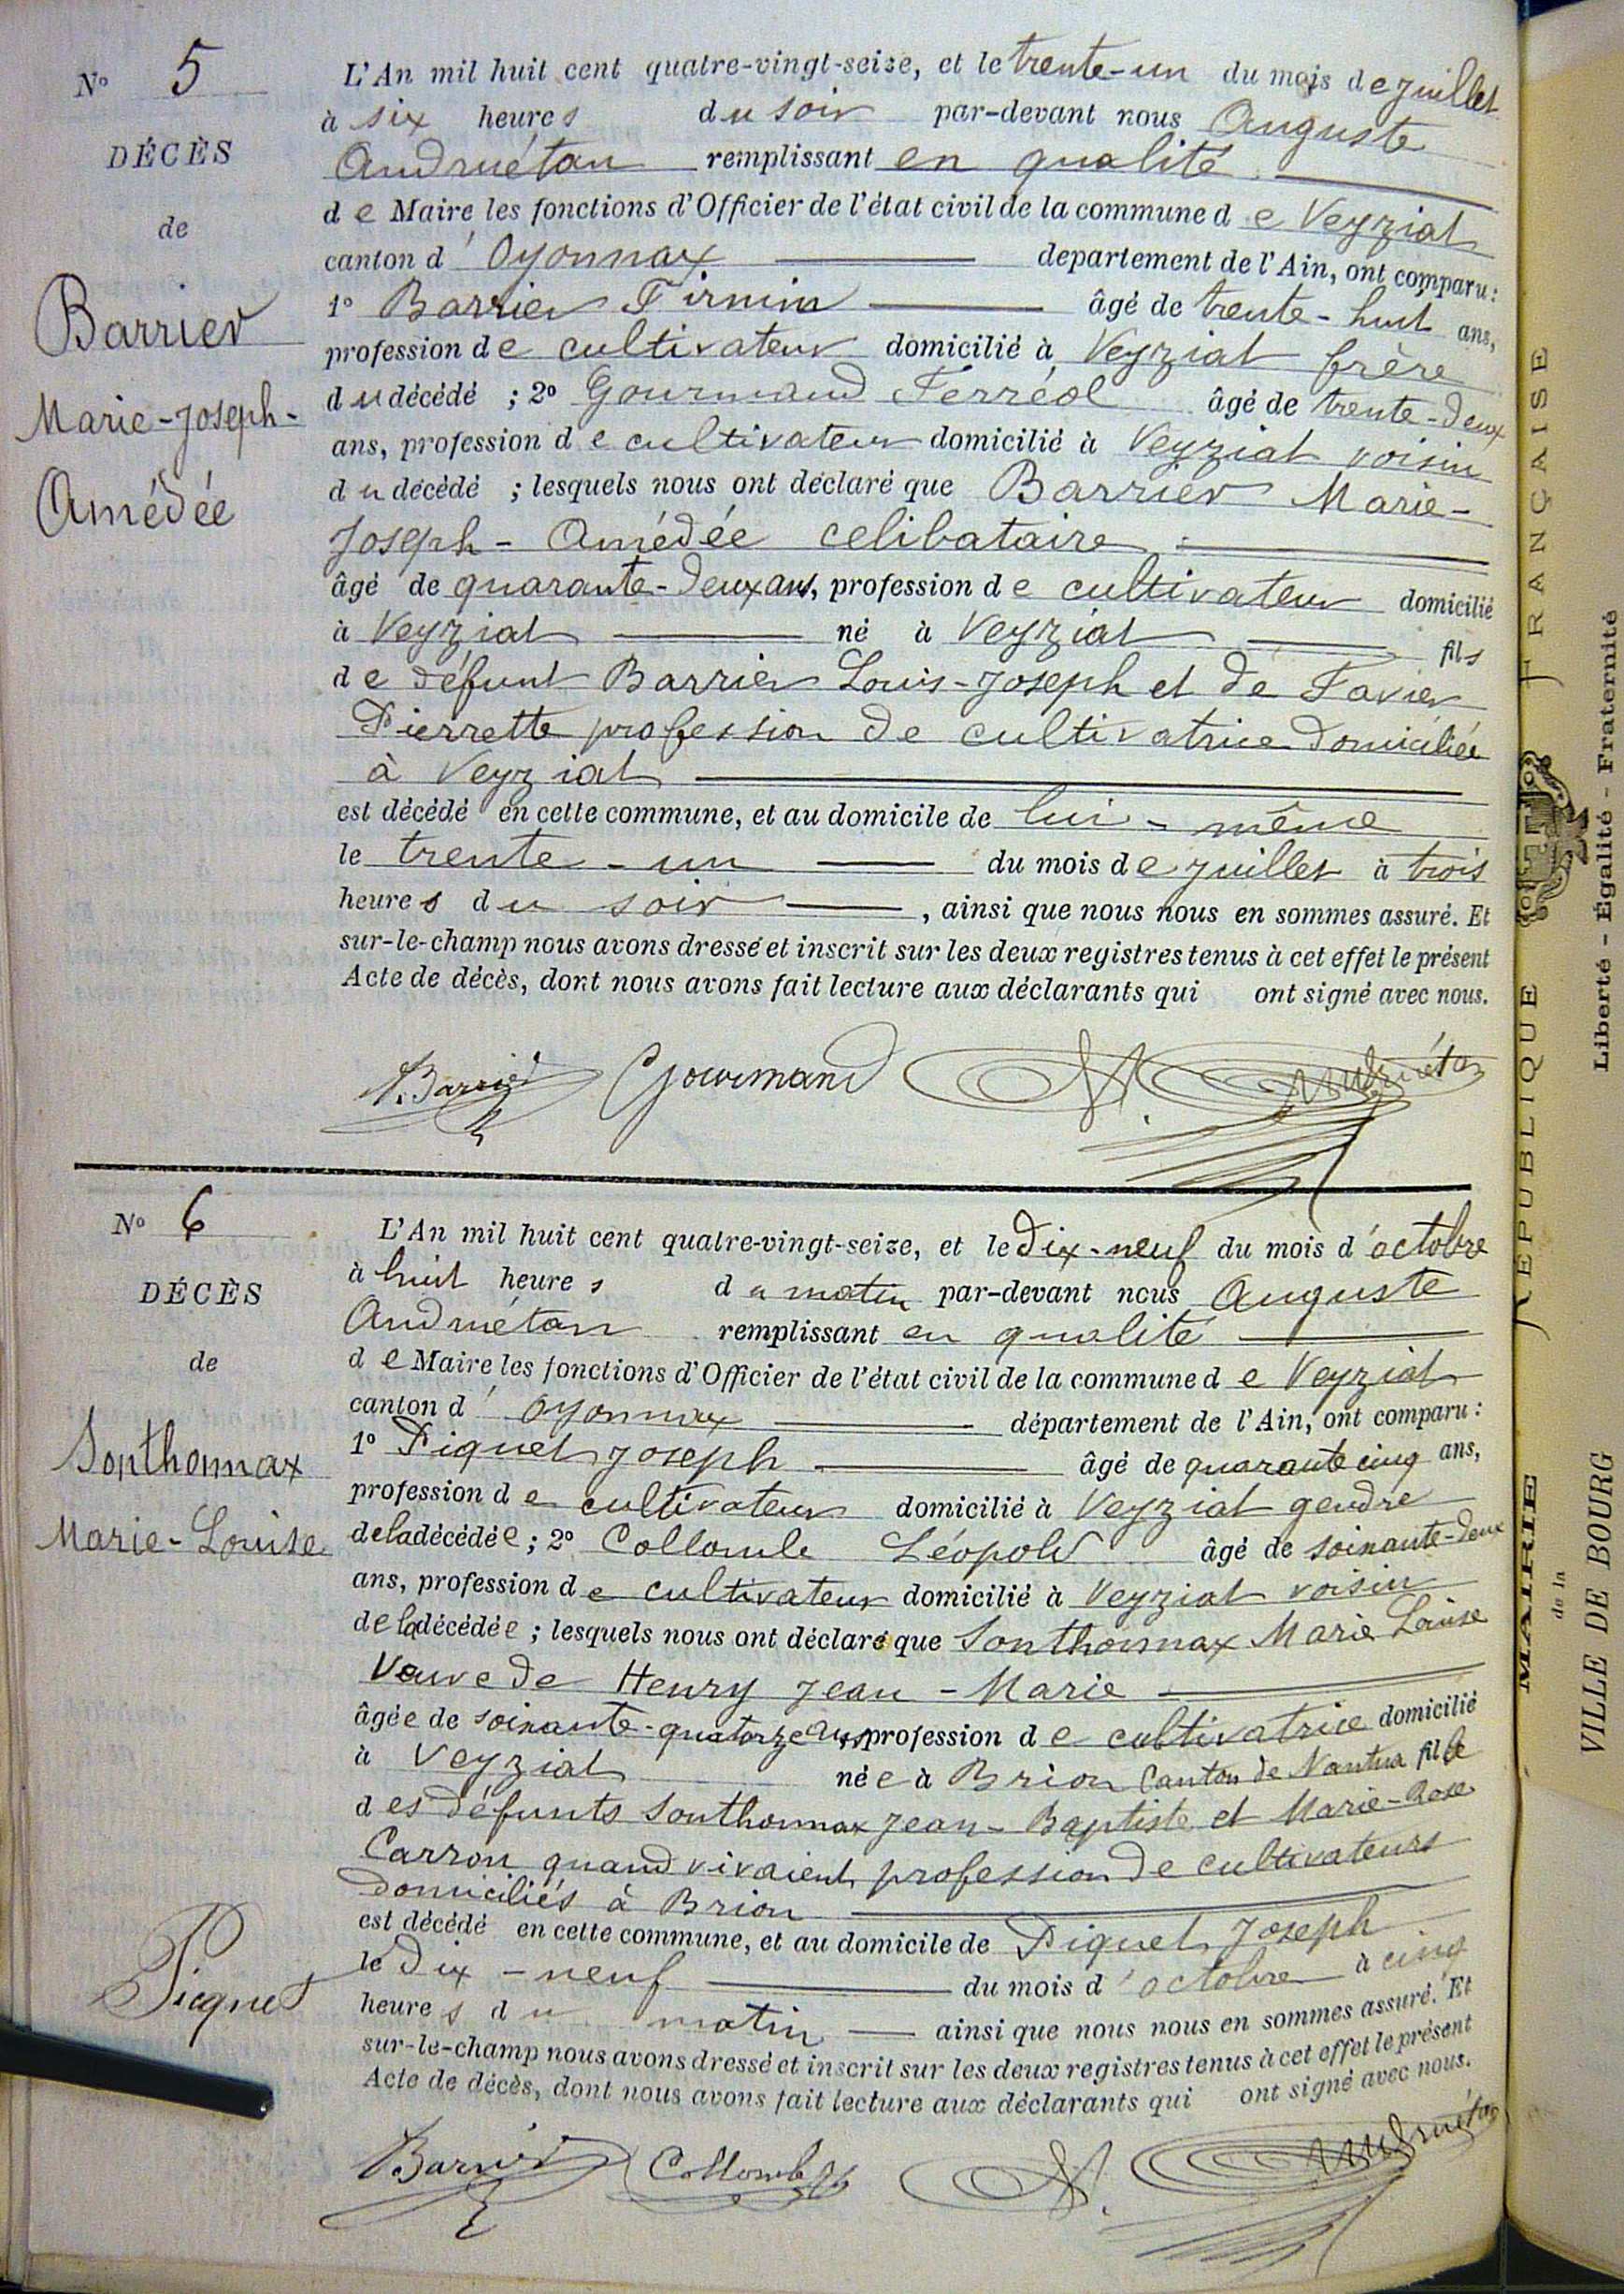 N° 5
DÉCÈS
de
Barrier
Marie-Joseph-
Amédée
L'An mil huit cent quatre-vingt-seize, et le trente-un du mois de juillet
à six heures du soir par-devant nous Auguste
Andruétan remplissant en qualité
de Maire les fonctions d'Officier de l'état civil de la commune de Veyziat
canton d'Oyonnax departement de l'Ain, ont comparu :
1° Barrier Firmin âgé de trente-huit ans,
profession de cultivateur domicilié à Veyziat frère
du décédé ; 2° Gourmand Ferréol âgé de trente-deux
ans, profession de cultivateur domicilié à Veyziat voisin
du décédé ; lesquels nous ont déclaré que Barrier Marie-
Joseph-Amédée celibataire
âgé de quarante-deux ans, profession de cultivateur domicilié
à Veyziat né à Veyziat fils
de défunt Barrier Louis-Joseph et de Favier
Pierrette profession de cultivatrice domiciliée
à Veyziat
est décédé en cette commune, et au domicile de lui-même
le trente-un du mois de juillet à trois
heures du soir, ainsi que nous nous en sommes assuré. Et
sur-le-champ nous avons dressé et inscrit sur les deux registres tenus à cet effet le présent
Acte de décès, dont nous avons fait lecture aux déclarants qui ont signé avec nous.
Barrier Gourmand A. Andruétan
N° 6
DÉCÈS
de
Sonthonnax
Marie-Louise
L'An mil huit cent quatre-vingt-seize, et le dix-neuf du mois d'octobre
à huit heures du matin par-devant nous Auguste
Andruétan remplissant en qualité
de Maire les fonctions d'Officier de l'état civil de la commune de Veyziat
canton d'Oyonnax département de l'Ain, ont comparu :
1° Piquet Joseph âgé de quarante cinq ans,
profession de cultivateur domicilié à Veyziat gendre
de la décédée ; 2° Collombe Léopold âgé de soixante-deux
ans, profession de cultivateur domicilié à Veyziat voisin
de la décédée ; lesquels nous ont déclaré que Sonthonnax Marie Louise
veuve de Henry Jean-Marie
âgée de soixante-quatorze ans profession de cultivatrice domicilié
à Veyziat née à Brion Canton de Nantua fille
des défunts Sonthonnax Jean-Baptiste et Marie-Rose
Carron quand vivaient profession de cultivateurs
domiciliés à Brion
est décédé en cette commune, et au domicile de Piquet Joseph
le dix-neuf du mois d'octobre à cinq
heures du matin ainsi que nous nous en sommes assuré. Et
sur-le-champ nous avons dressé et inscrit sur les deux registres tenus à cet effet le présent
Acte de décès, dont nous avons fait lecture aux déclarants qui ont signé avec nous.
Picquet
Barrier Collombe A. Andruétan
RÉPUBLIQUE FRANÇAISE
Liberté - Égalité - Fraternité
MAIRIE
de la
VILLE DE BOURG